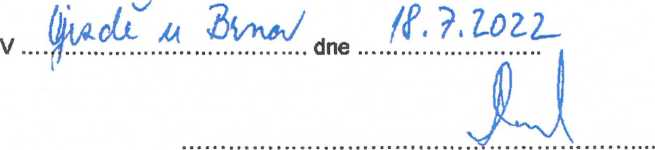 V Újezdě u Brna dne 18.7.2022